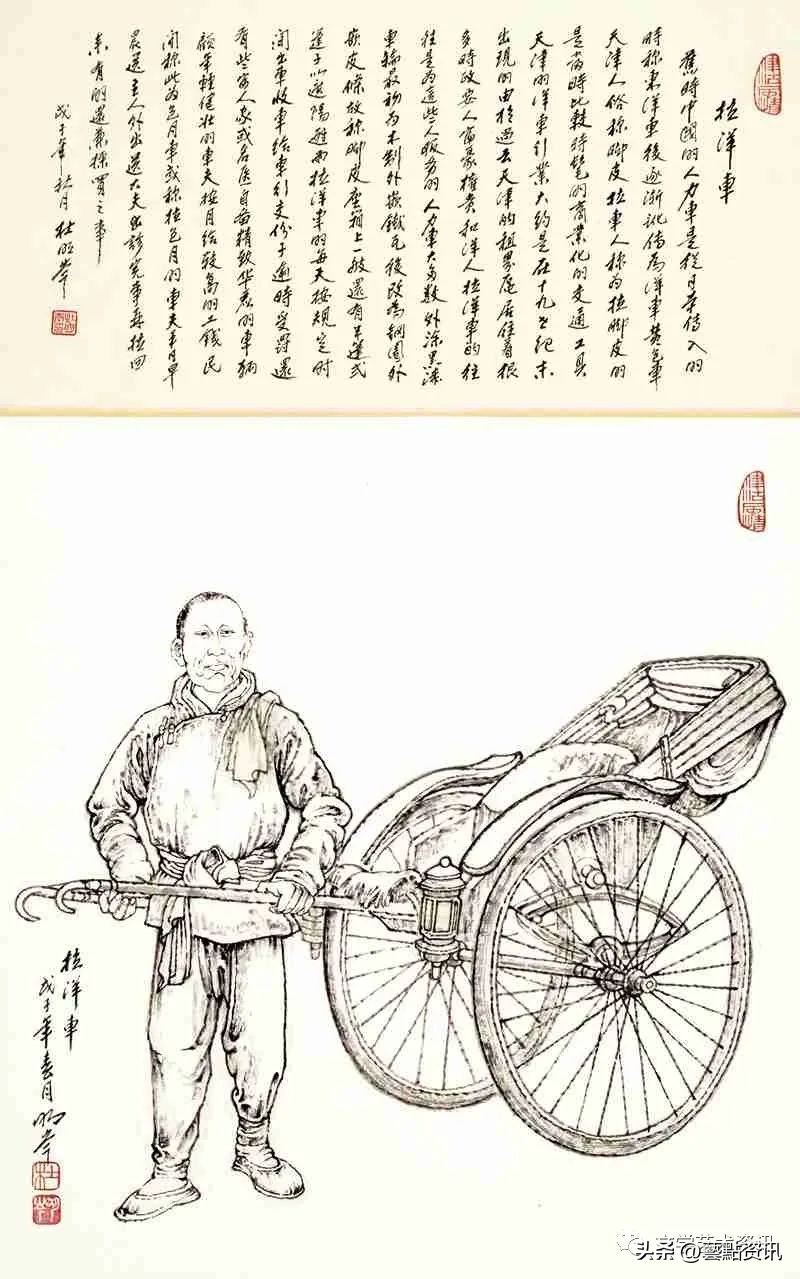 拉洋車
舊時中國的人力車是從日本傳入的
時称東洋車後逐渐訛傳為洋車黄包車
天津人俗称脚皮拉車人称为拉脚皮的
是當時比較時髦的商業化的交通工具
天津的洋車引業大約是在十九世紀末
出現的由於過去天津的租界區居住着很
多時政要人富豪權貴和洋人拉洋車的往
往是为這些人服务的人力車大多数外涂黑漆
車輪最初为木制外嵌鐵瓦後改為鋼圈外
嵌皮條故称脚皮座箱上一般還有半篷式
篷子以遮陽避雨拉洋車的每天按規定时
间出車收車给車行交份子逾時受罸還
有些富人家或名医自备精致华麗的車辆
顧年輕健壮的車夫按月给較高的工錢民
间称此为包月車或称拉包月的車夫手日早
晨送主人外出送大夫出診完事再拉回
来有的還兼採買之事
戊子年秋月 杜明岑
津沽舊情
津沽舊情
拉洋車
戊子年春月 明岑
杜
头条@藝點资讯